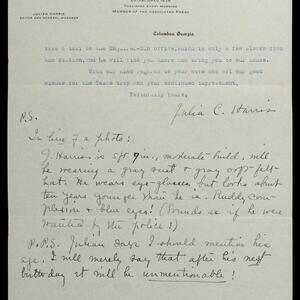 JULIAN HARRIS
EDITOR AND GENERAL MANAGER
PUBLISHED EVERY MORNING
MEMBER OF THE ASSOCIATED PRESS
Columbus, Georgia
take a taxi to the Enquirer-Sun office, which is only a few blocks from
the station, and he will find you there and bring you to our house.
With our kind regards to your wife and all our good
wishes for the Texas trip and your continued improvement,
Personally yours,
Julia C. Harris
P.S.
In lieu of a photo:
J. Harris is 5 ft. 9 in., moderate build, will
be wearing a gray suit & gray soft felt
hat. He wears eye-glasses, but looks about
ten years younger than he is. Ruddy com-
plexion & blue eyes! (Sounds as if he were
wanted by the police!)
P.P.S. Julian says I should mention his
age. I will merely say that after his next
birthday it will be unmentionable!